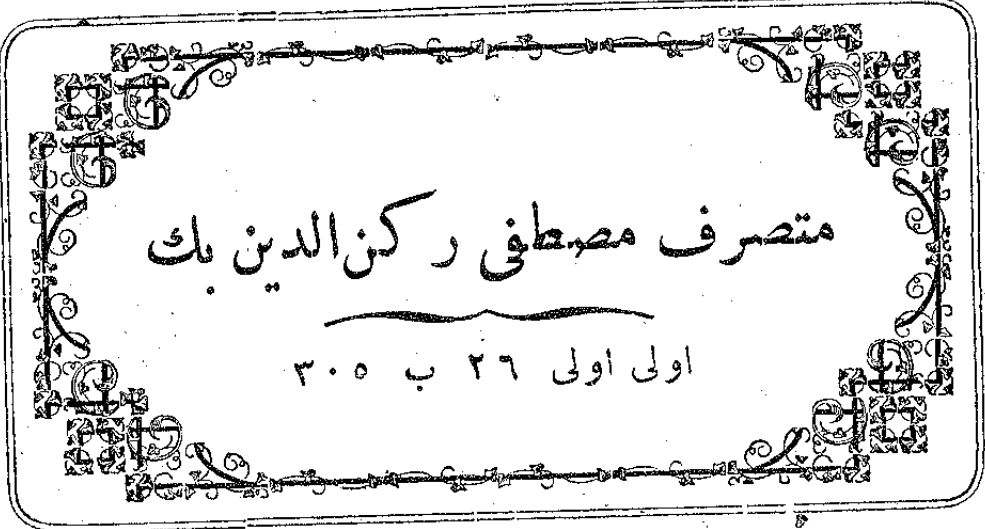 متصرف مصطفى ركن‌الدين بك
اولى اولى ٢٦ ب ٣٠٥